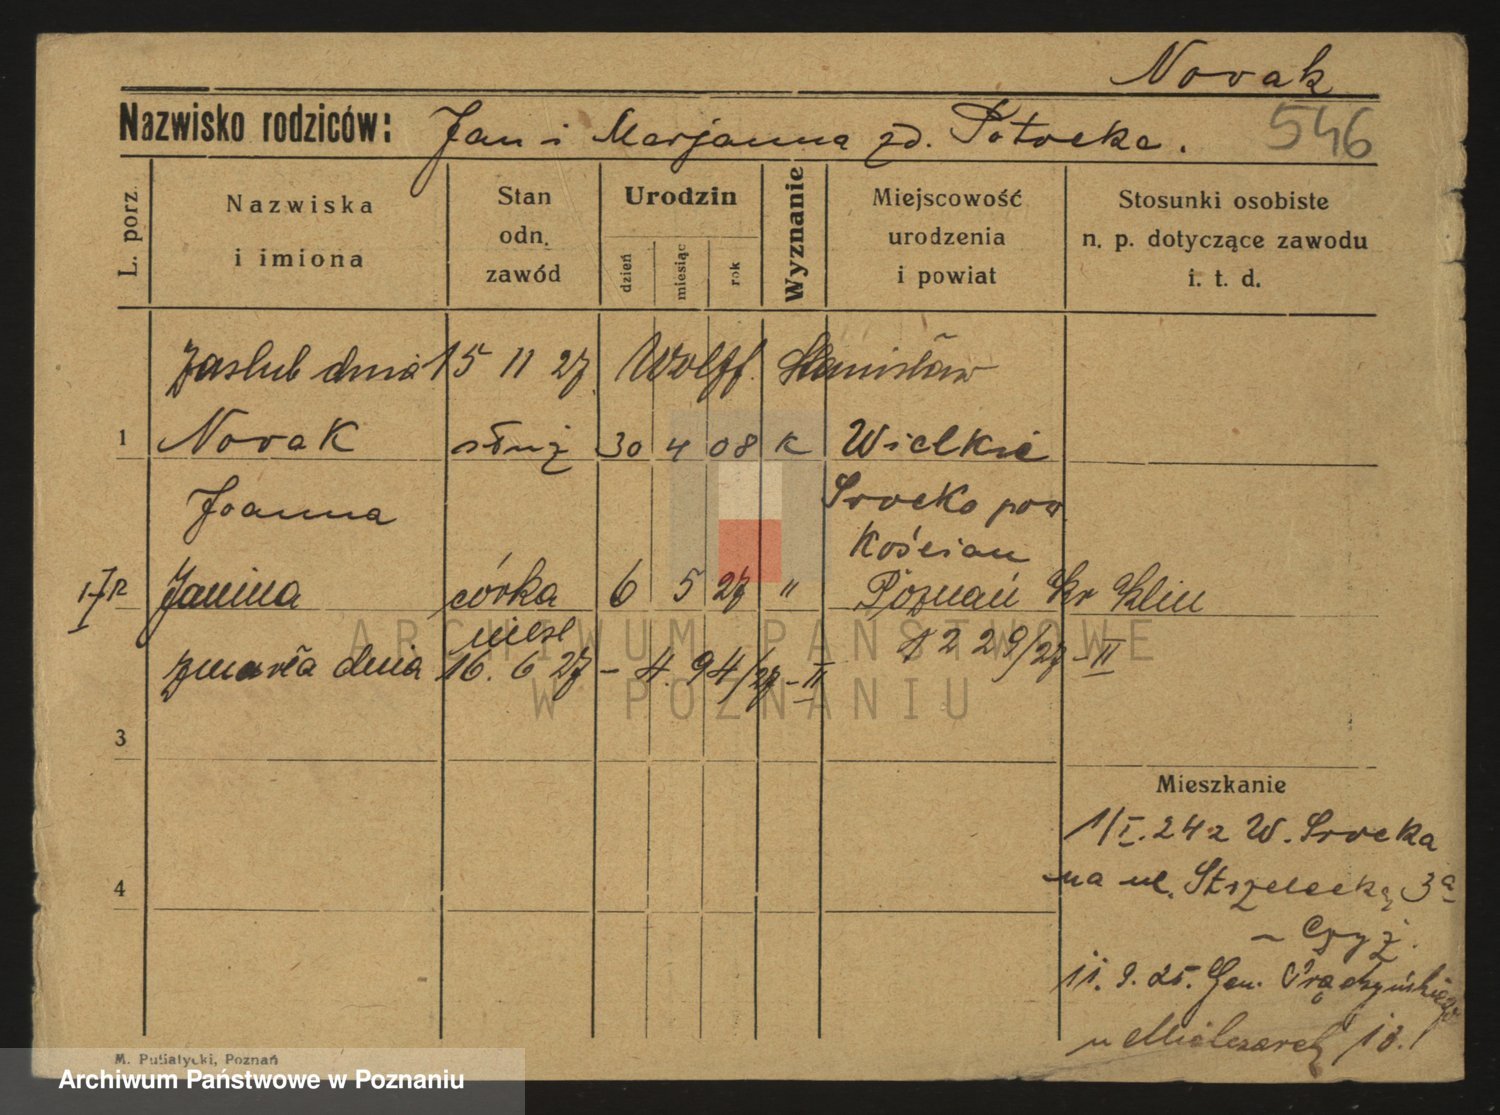 Novak
Nazwisko rodziców: Jan i Marjanna zd. Potocka.
546
L. porz.
Nazwiska
i imiona
Stan
odn.
zawód
Urodzin
dzień
miesiąc
rok
Wyznanie
Miejscowość
urodzenia
i powiat
Stosunki osobiste
n. p. dotyczące zawodu
i. t. d.
Zaslub dnia 15 11 27 Wolff. Stanisław
1 Novak służ 30 4 08 K Wielkie
Joanna Srocko pow.
Kościan
Janina córka 6 5 27 " Poznań Kr Klin
niesl
12 29/27 - II
zmarła dnia 16. 6 27 - 4. 94/27 - II
3
Mieszkanie
1/I. 24 z W. Srocka
4 na ul. Strzelecką 3a
- Czyż.
11. 9. 25. Gen. Prądzyńskiego
u 18.1
ARCHIWUM PAŃSTWOWE
W POZNANIU
M. Putiatycki, Poznań
Archiwum Państwowe w Poznaniu